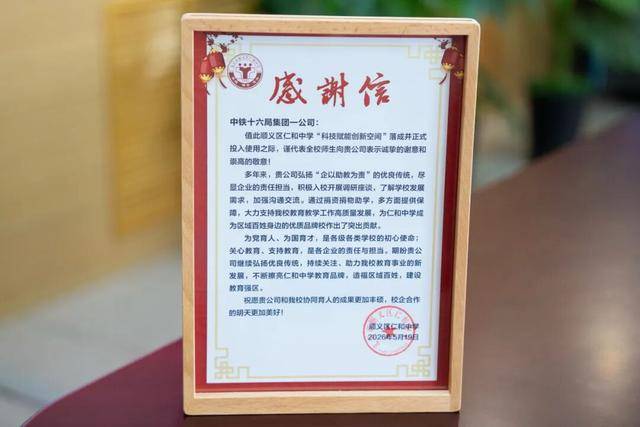 感謝信
中铁十六局集团一公司：
值此顺义区仁和中学“科技赋能创新空间”落成并正式
投入使用之际，谨代表全校师生向贵公司表示诚挚的谢意和
崇高的敬意！
多年来，贵公司弘扬“企以助教为贵”的优良传统，尽
显企业的责任担当，积极入校开展调研座谈，了解学校发展
需求，加强沟通交流。通过捐资捐物助学，多方面提供保
障，大力支持我校教育教学工作高质量发展，为仁和中学成
为区域百姓身边的优质品牌校作出了突出贡献。
为党育人、为国育才，是各级各类学校的初心使命；
关心教育、支持教育，是各企业的责任与担当。期盼贵公
司继续弘扬优良传统，持续关注、助力我校教育事业的新
发展，不断擦亮仁和中学教育品牌，造福区域百姓，建设
教育强区。
祝愿贵公司和我校协同育人的成果更加丰硕，校企合作
的明天更加美好！
顺义区仁和中学
2026年5月19日